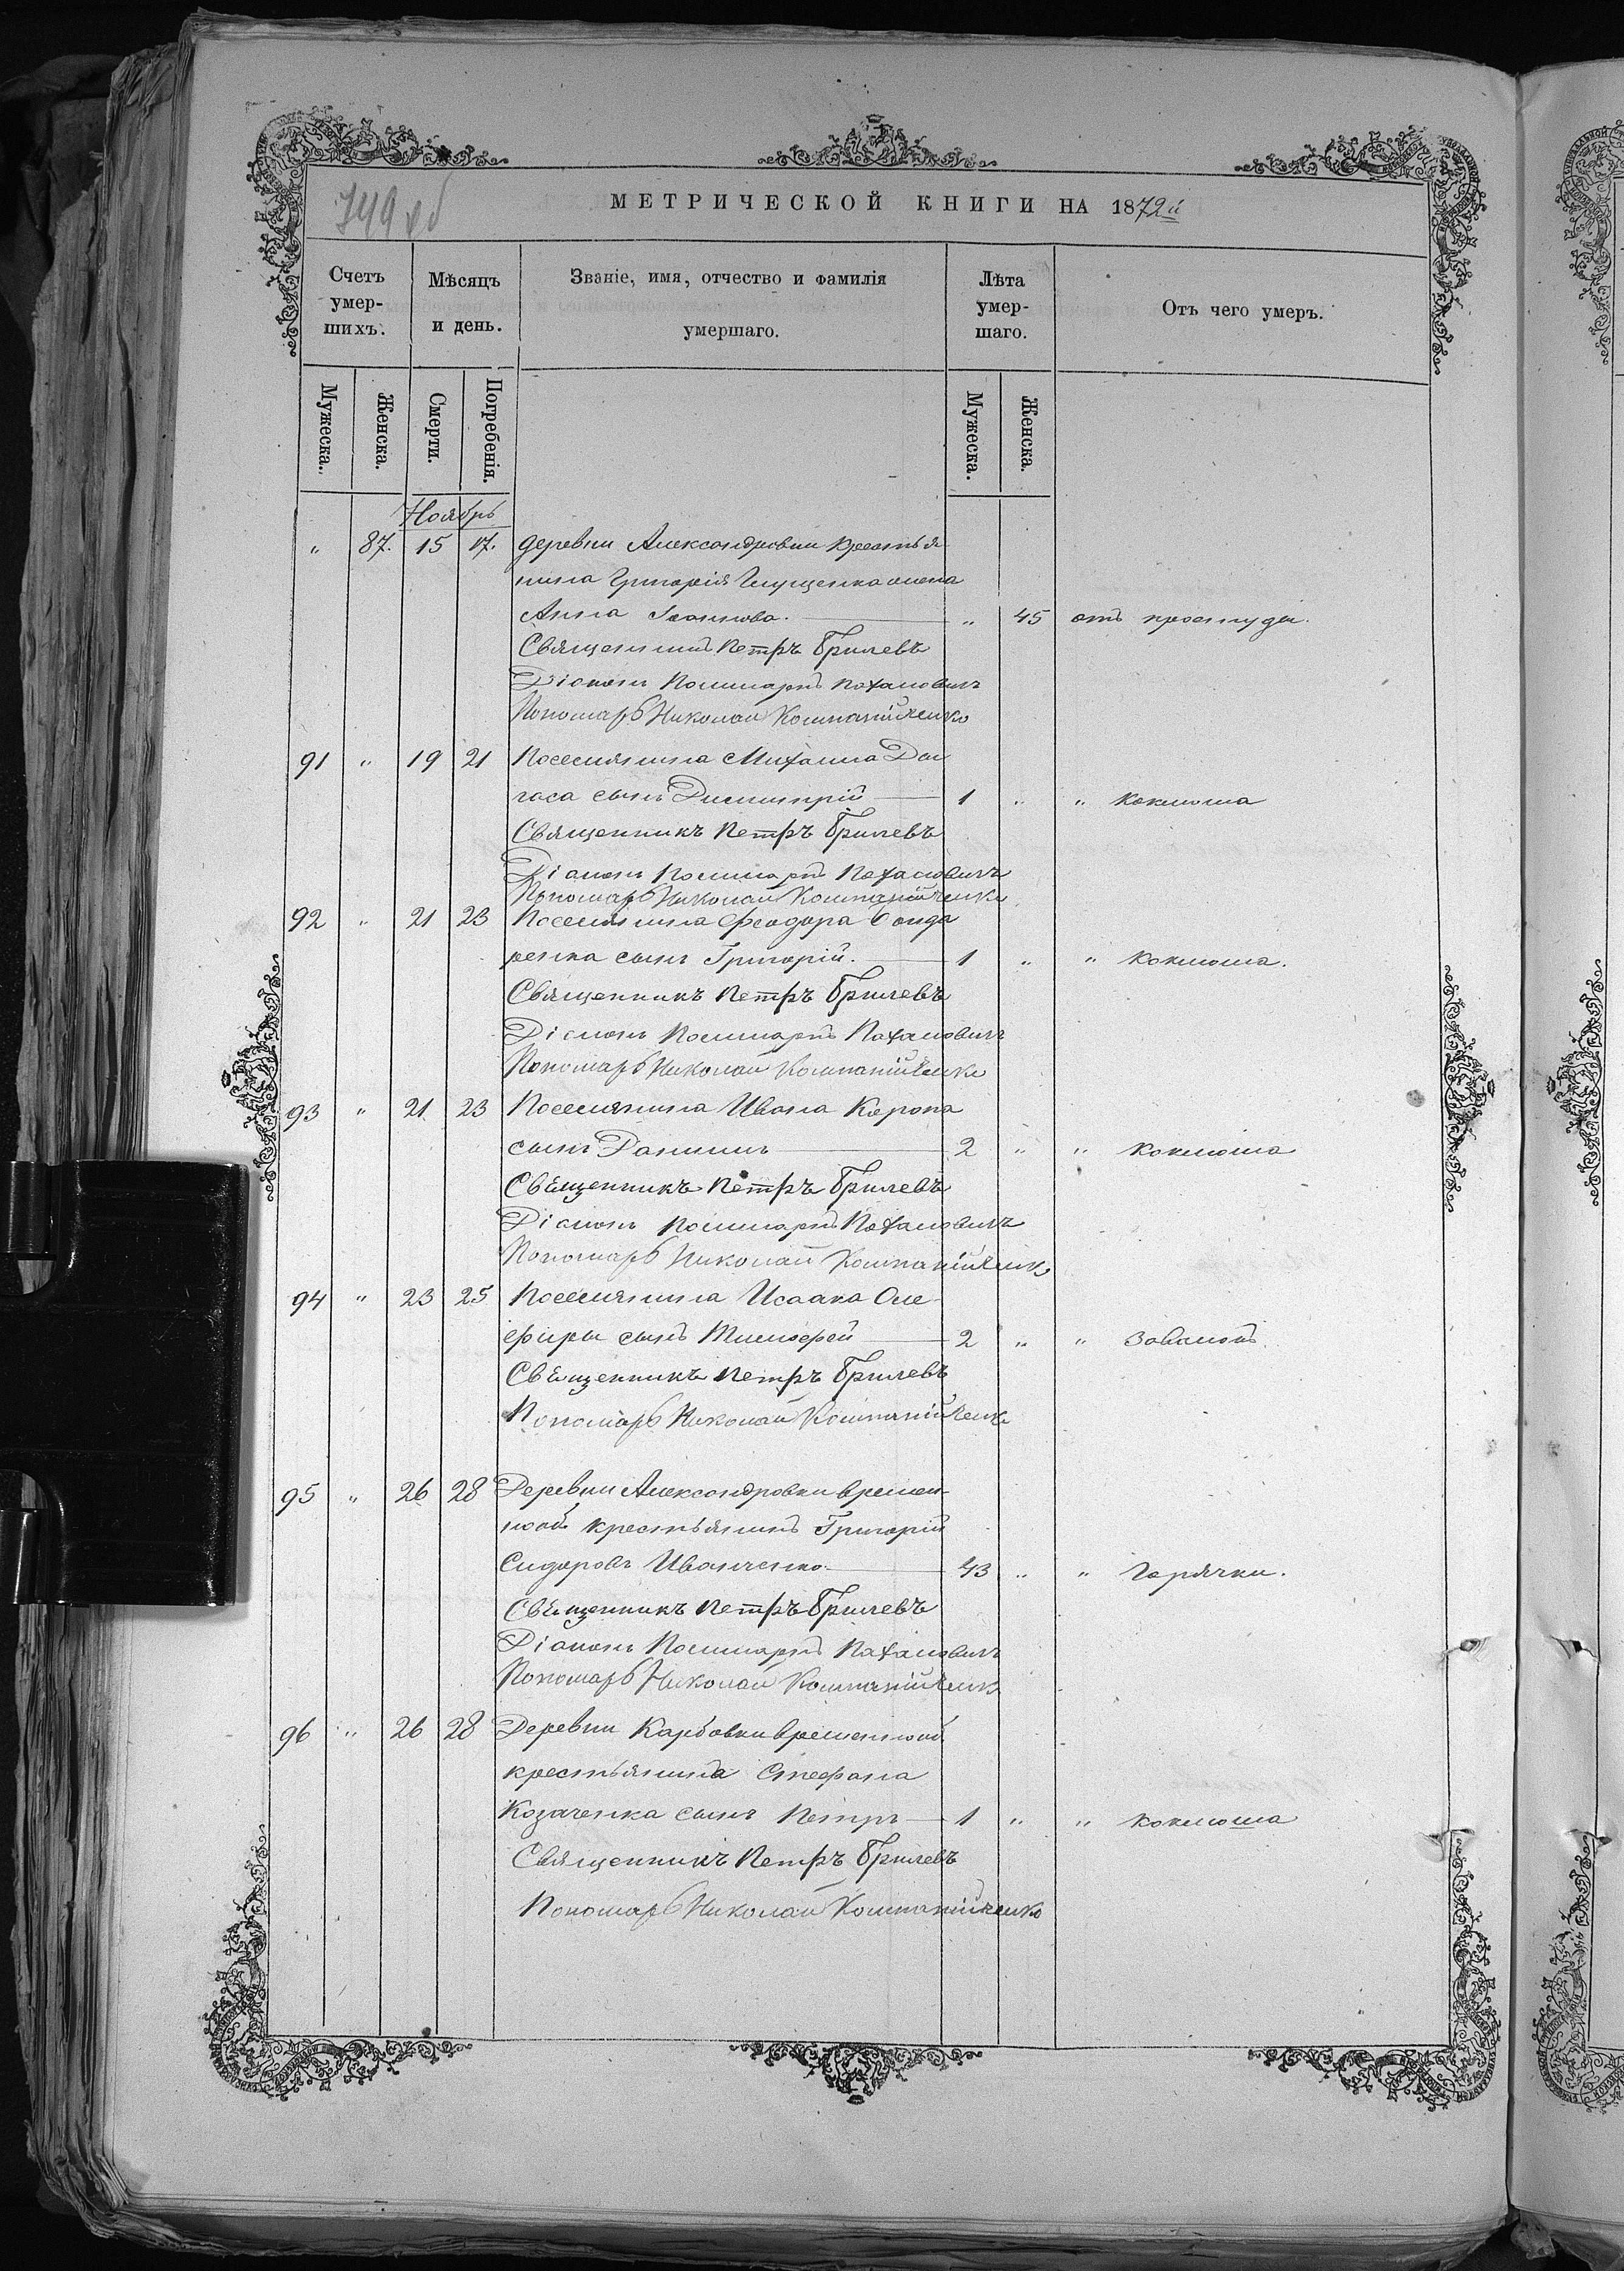 749 об
МЕТРИЧЕСКОЙ КНИГИ НА 1872й
Счетъ умер-шихъ.
Мѣсяцъ и день.
Званіе, имя, отчество и фамилія умершаго.
Лѣта умер-шаго.
Отъ чего умеръ.
Мужеска.
Женска.
Смерти.
Погребенія.
Мужеска.
Женска.
Ноябрь
" 87. 15 17. Деревни Александровки крестья
нина Григорія Глущенка жена
Анна Іоаннова. " 45 отъ простуды.
Священникъ Петръ Брилевъ
Діаконъ
Пономарь Николай Компанійченко
91 " 19 21 Поселянина Михаила
сынъ Димитрій 1 " " коклюша
Священникъ Петръ Брилевъ
Діаконъ
Пономарь Николай Компанійченко
92 " 21 23 Поселянина Феодора Бонда
ренка сынъ Григорій. 1 " " коклюша.
Священникъ Петръ Брилевъ
Діаконъ
Пономарь Николай Компанійченко
93 " 21 23 Поселянина Ивана Карпа
сынъ Даніилъ 2 " " коклюша
Священникъ Петръ Брилевъ
Діаконъ
Пономарь Николай Компанійченко
94 " 23 25 Поселянина Исаака Оле
фиры сынъ Тимофей 2 " "
Священникъ Петръ Брилевъ
Пономарь Николай Компанійченко
95 " 26 28 Деревни Александровки времен
нооб. крестьянинъ Григорій
Сидоровъ Иванченко. 43 " " Горячки.
Священникъ Петръ Брилевъ
Діаконъ
Пономарь Николай Компанійченко
96 " 26 28 Деревни Карбовки временнооб.
крестьянина Стефана
Козаченка сынъ Петръ 1 " " коклюша
Священникъ Петръ Брилевъ
Пономарь Николай Компанійченко